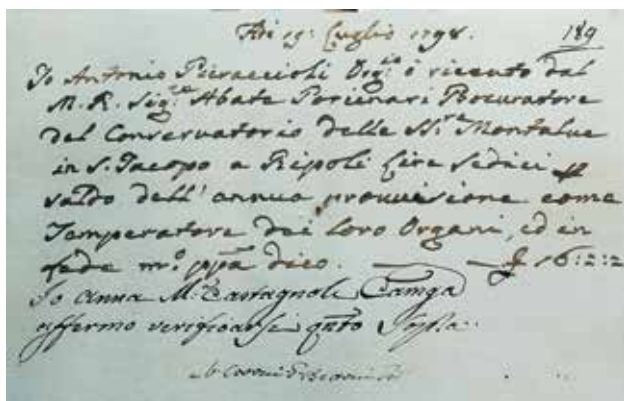 Adi 19: Luglio 1798. 189
Io Antonio Piraccioli Org.ta ò riceuto dal
M. R. Sig.re Abate Porcinari Procuratore
del Conservatorio delle SS.re Montalve
in S. Jacopo a Ripoli lire sedici
saldo dell'annua provvisione come
Temperatore dei loro Organi, ed in
fede m.o ppa dico. £ 16:2:2
Io Anna M.a Castagnoli Camga
affermo verificarsi qnto Sopra.